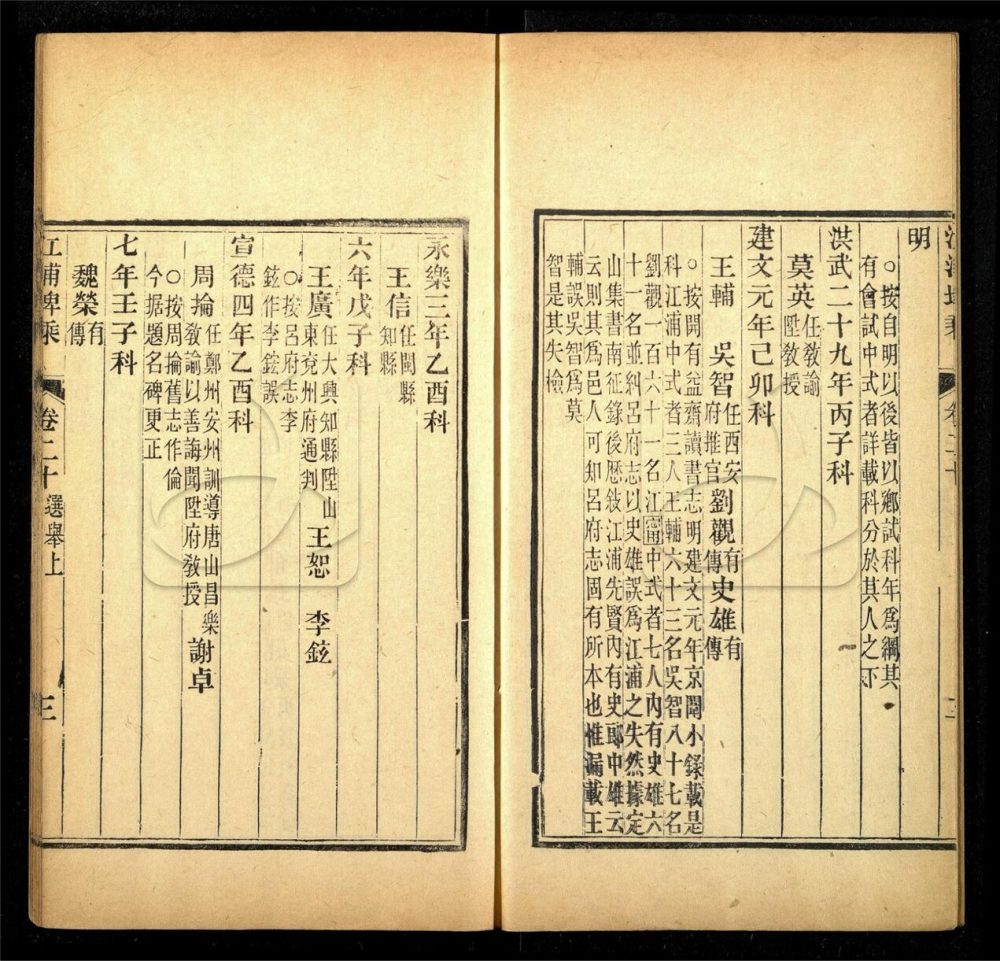 明
○按自明以後皆以鄉試科年爲綱其
有會試中式者詳載科分於其人之下
洪武二十九年丙子科
莫英任敎諭
陞敎授
建文元年己卯科
王輔 吳智任西安府推官劉觀有傳史雄有傳
○按開有益齋讀書志明建文元年京闈小錄載是
科江浦中式者三人王輔六十三名吳智八十七名
劉觀一百六十一名江甯中式者七人內有史雄六
十一名並糾呂府志以史雄誤爲江浦之失然據定
山集書南征錄後歷敍江浦先賢內有史郎中雄云
云則其爲邑人可知呂府志固有所本也惟漏載王
輔誤吳智爲莫
智是其失檢
永樂三年乙酉科
王信任閩縣
知縣
六年戊子科
王廣任大興知縣陞山東兗州府通判王恕 李鉉
○按呂府志李
鉉作李鋐誤
宣德四年乙酉科
周掄任鄭州安州訓導唐山昌樂敎諭以善誨聞陞府敎授謝卓
○按周掄舊志作倫
今据題名碑更正
七年壬子科
魏榮有傳
江浦埤乘
卷二十 選舉上
三